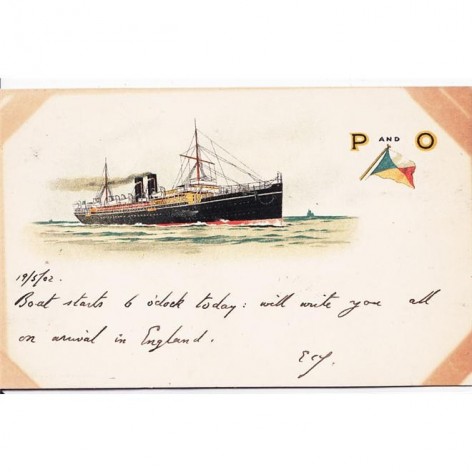 P AND O
19/5/02.
Boat starts 6 o'clock today: will write you all
on arrival in England.